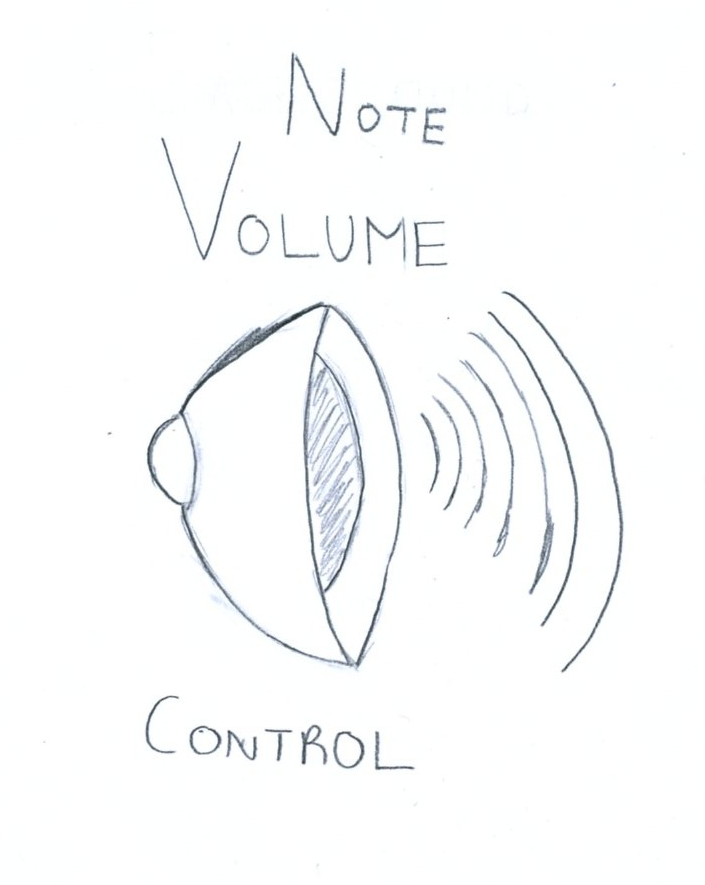 NOTE
VOLUME
CONTROL